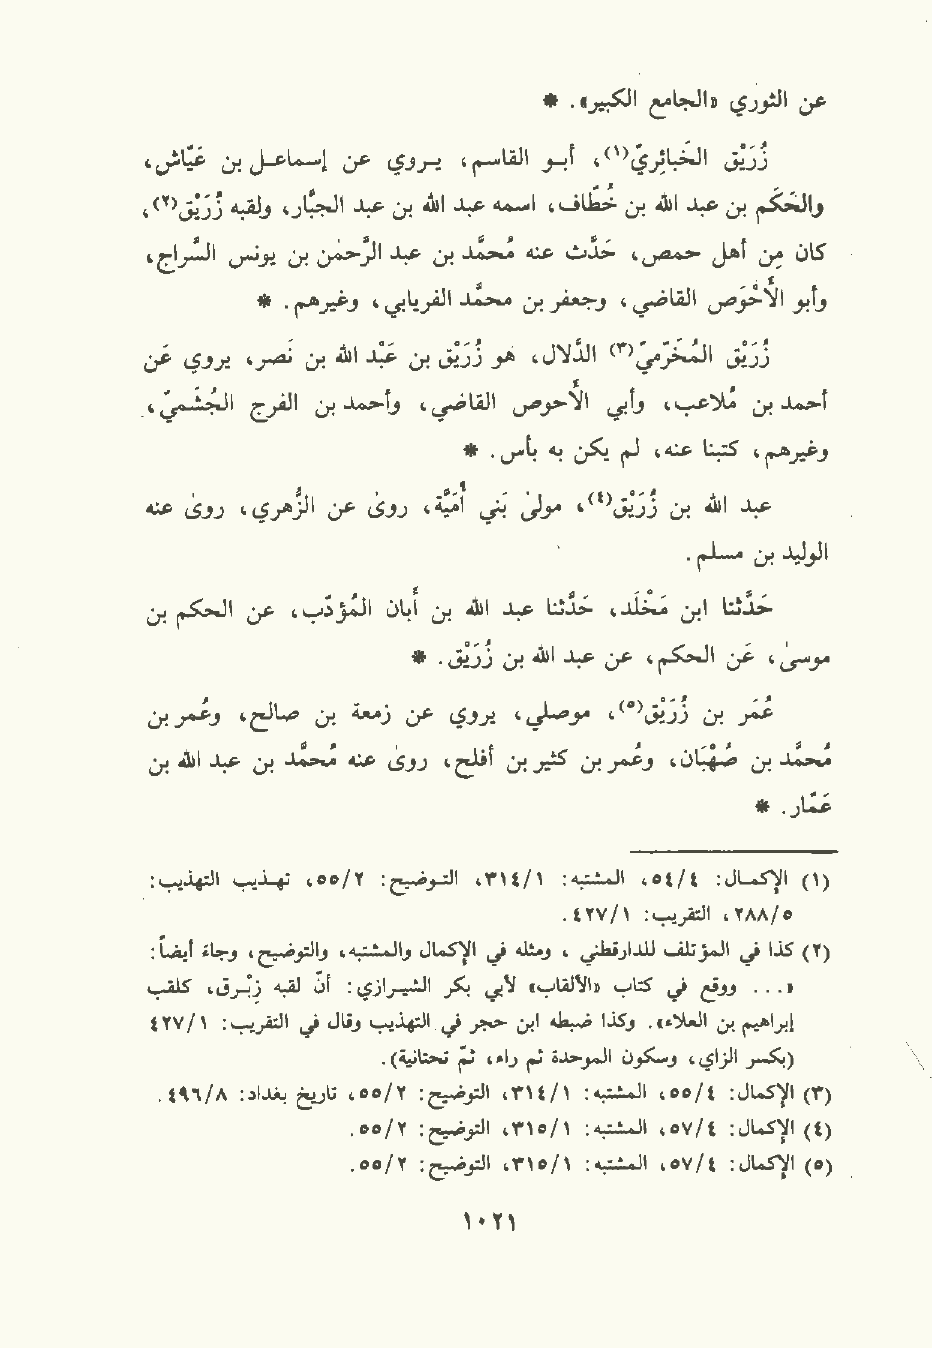 عن الثوري «الجامع الكبير». *
زُرَيْق الخَبائِريّ(١)، أبو القاسم، يروي عن إسماعيل بن عَيّاش،
والحَكَم بن عبد الله بن خُطّاف، اسمه عبد الله بن عبد الجبّار، ولقبه زُرَيْق(٢)،
كان مِن أهل حمص، حَدّث عنه مُحمّد بن عبد الرّحمٰن بن يونس السّراج،
وأبو الأَحْوَص القاضي، وجعفر بن محمّد الفريابي، وغيرهم. *
زُرَيْق المُخَرّميّ(٣) الدّلال، هو زُرَيْق بن عَبْد الله بن نَصر، يروي عَن
أحمد بن مُلاعب، وأبي الأَحوص القاضي، وأحمد بن الفرج الجُشَميّ،
وغيرهم، كتبنا عنه، لم يكن به بأس. *
عبد الله بن زُرَيْق(٤)، مولىٰ بَني أُمَيّة، روىٰ عن الزُّهري، روىٰ عنه
الوليد بن مسلم.
حَدّثنا ابن مَخْلَد، حَدّثنا عبد الله بن أَبان المُؤدّب، عن الحكم بن
موسىٰ، عَن الحكم، عن عبد الله بن زُرَيْق. *
عُمَر بن زُرَيْق(٥)، موصلي، يروي عن زمعة بن صالح، وعُمر بن
مُحمّد بن صُهْبَان، وعُمر بن كثير بن أفلح، روىٰ عنه مُحمّد بن عبد الله بن
عَمّار. *
(١) الإكمال: ٥٤/٤، المشتبه: ٣١٤/١، التوضيح: ٥٥/٢، تهذيب التهذيب:
٢٨٨/٥، التقريب: ٤٢٧/١.
(٢) كذا في المؤتلف للدارقطني، ومثله في الإكمال والمشتبه، والتوضيح، وجاء أيضاً:
«... ووقع في كتاب «الألقاب» لأبي بكر الشيرازي: أنّ لقبه زِبْرق، كلقب
إبراهيم بن العلاء». وكذا ضبطه ابن حجر في التهذيب وقال في التقريب: ٤٢٧/١
(بكسر الزاي، وسكون الموحدة ثم راء، ثمّ تحتانية).
(٣) الإكمال: ٥٥/٤، المشتبه: ٣١٤/١، التوضيح: ٥٥/٢، تاريخ بغداد: ٤٩٦/٨.
(٤) الإكمال: ٥٧/٤، المشتبه: ٣١٥/١، التوضيح: ٥٥/٢.
(٥) الإكمال: ٥٧/٤، المشتبه: ٣١٥/١، التوضيح: ٥٥/٢.
١٠٢١